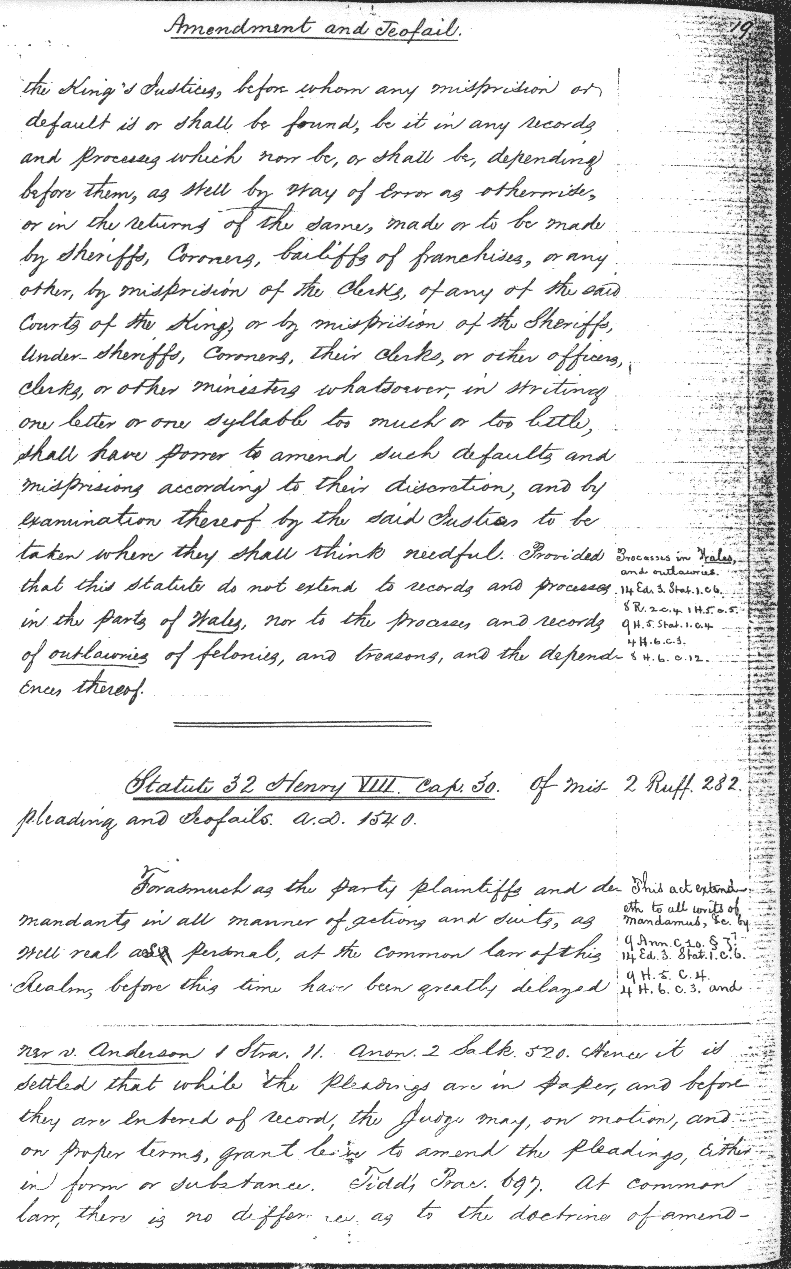 Amendment and Jeofail.
19
the King's Justices, before whom any misprision or
default is or shall be found, be it in any records
and processes which now be, or shall be, depending
before them, as well by way of Error as otherwise,
or in the returns of the same, made or to be made
by sheriffs, Coroners, bailiffs of franchises, or any
other, by misprision of the Clerks, of any of the said
Courts of the King, or by misprision of the Sheriffs,
Under-sheriffs, Coroners, their clerks, or other officers,
Clerks, or other ministers whatsoever, in writing
one letter or one syllable too much or too little,
shall have power to amend such defaults and
misprisions according to their discretion, and by
examination thereof by the said Justices to be
taken where they shall think needful. Provided
that this statute do not extend to records and processes
in the parts of Wales, nor to the processes and records
of outlawries of felonies, and treasons, and the depend-
ences thereof.
Processes in Wales,
and outlawries.
14 Ed. 3. Stat. 1. c 6.
8 R. 2. c. 4. 1 H. 5. c. 5.
9 H. 5. Stat. 1. c. 4
4 H. 6. c. 3.
8 H. 6. c. 12.
Statute 32 Henry VIII. Cap. 30. Of mis-
2 Ruff. 282.
pleading and Jeofails. A.D. 1540.
Forasmuch as the party plaintiffs and de-
mandants in all manner of actions and suits, as
well real as personal, at the common law of this
Realm, before this time have been greatly delayed
This act extend-
eth to all writs of
mandamus, &c. by
9 Ann. c. 20. § 7.
14 Ed. 3. Stat. 1. c. 6.
9 H. 5. C. 4.
4 H. 6. c. 3. and
ner v. Anderson 1 Stra. 11. Anon. 2 Salk. 520. Hence it is
settled that while the pleadings are in paper, and before
they are Entered of record, the Judge may, on motion, and
on proper terms, grant leave to amend the pleadings, Either
in form or substance. Tidd's Prac. 697. At common
law, there is no difference as to the doctrine of amend-